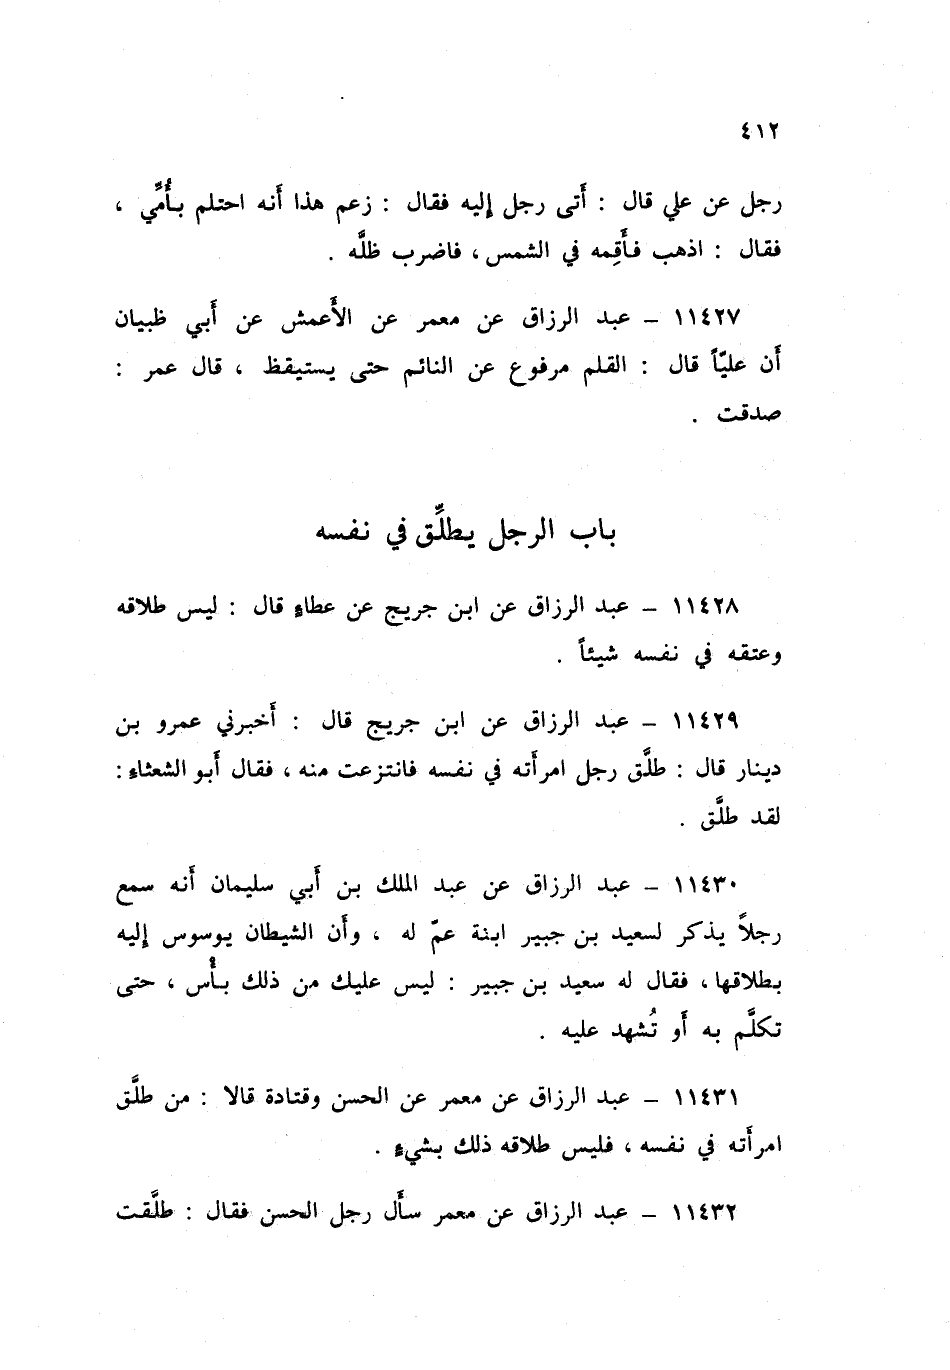 ٤١٢
رجل عن علي قال : أَتى رجل إليه فقال : زعم هذا أَنه احتلم بأُمِّي ،
فقال : اذهب فأَقِمه في الشمس ، فاضرب ظلَّه .
١١٤٢٧ – عبد الرزاق عن معمر عن الأَعمش عن أَبي ظبيان
أَن عليّاً قال : القلم مرفوع عن النائم حتى يستيقظ ، قال عمر :
صدقت .
باب الرجل يطلِّق في نفسه
١١٤٢٨ – عبد الرزاق عن ابن جريج عن عطاء قال : ليس طلاقه
وعتقه في نفسه شيئاً .
١١٤٢٩ – عبد الرزاق عن ابن جريج قال : أَخبرني عمرو بن
دينار قال : طلَّق رجل امرأَته في نفسه فانتزعت منه ، فقال أَبو الشعثاء :
لقد طلَّق .
١١٤٣٠ – عبد الرزاق عن عبد الملك بن أَبي سليمان أَنه سمع
رجلاً يذكر لسعيد بن جبير ابنة عمّ له ، وأَن الشيطان يوسوس إليه
بطلاقها ، فقال له سعيد بن جبير : ليس عليك من ذلك بأْس ، حتى
تكلَّم به أَو تُشهد عليه .
١١٤٣١ – عبد الرزاق عن معمر عن الحسن وقتادة قالا : من طلَّق
امرأَته في نفسه ، فليس طلاقه ذلك بشيء .
١١٤٣٢ – عبد الرزاق عن معمر سأَل رجل الحسن فقال : طلَّقت